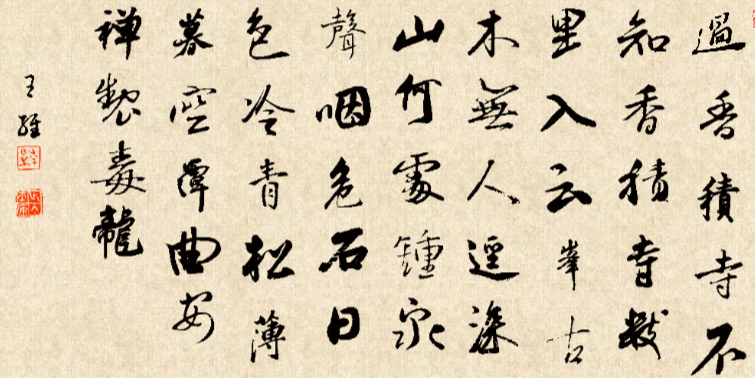 過香積寺不
知香積寺數
里入云峯古
木無人逕深
山何處鍾泉
聲咽危石日
色冷青松薄
暮空潭曲安
禅製毒龍
王維